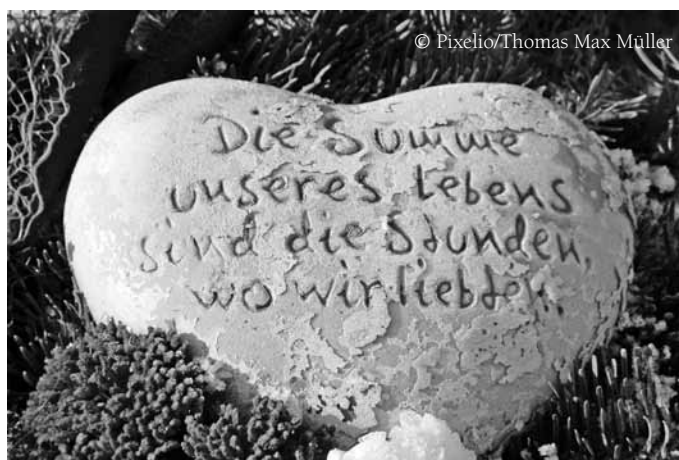 © Pixelio/Thomas Max Müller
Die Summe
unseres Lebens
sind die Stunden,
wo wir liebten.